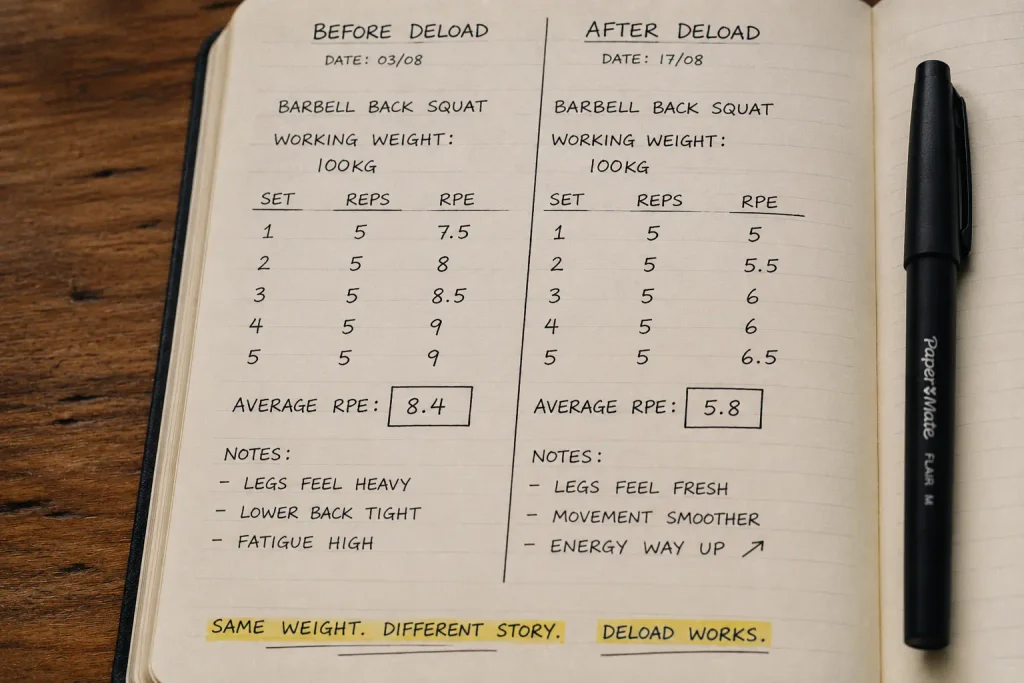 BEFORE DELOAD
DATE: 03/08
BARBELL BACK SQUAT
WORKING WEIGHT:
100KG
SET REPS RPE
1 5 7.5
2 5 8
3 5 8.5
4 5 9
5 5 9
AVERAGE RPE: 8.4
NOTES:
- LEGS FEEL HEAVY
- LOWER BACK TIGHT
- FATIGUE HIGH
AFTER DELOAD
DATE: 17/08
BARBELL BACK SQUAT
WORKING WEIGHT:
100KG
SET REPS RPE
1 5 5
2 5 5.5
3 5 6
4 5 6
5 5 6.5
AVERAGE RPE: 5.8
NOTES:
- LEGS FEEL FRESH
- MOVEMENT SMOOTHER
- ENERGY WAY UP ↗
SAME WEIGHT. DIFFERENT STORY. DELOAD WORKS.
Paper Mate FLAIR M